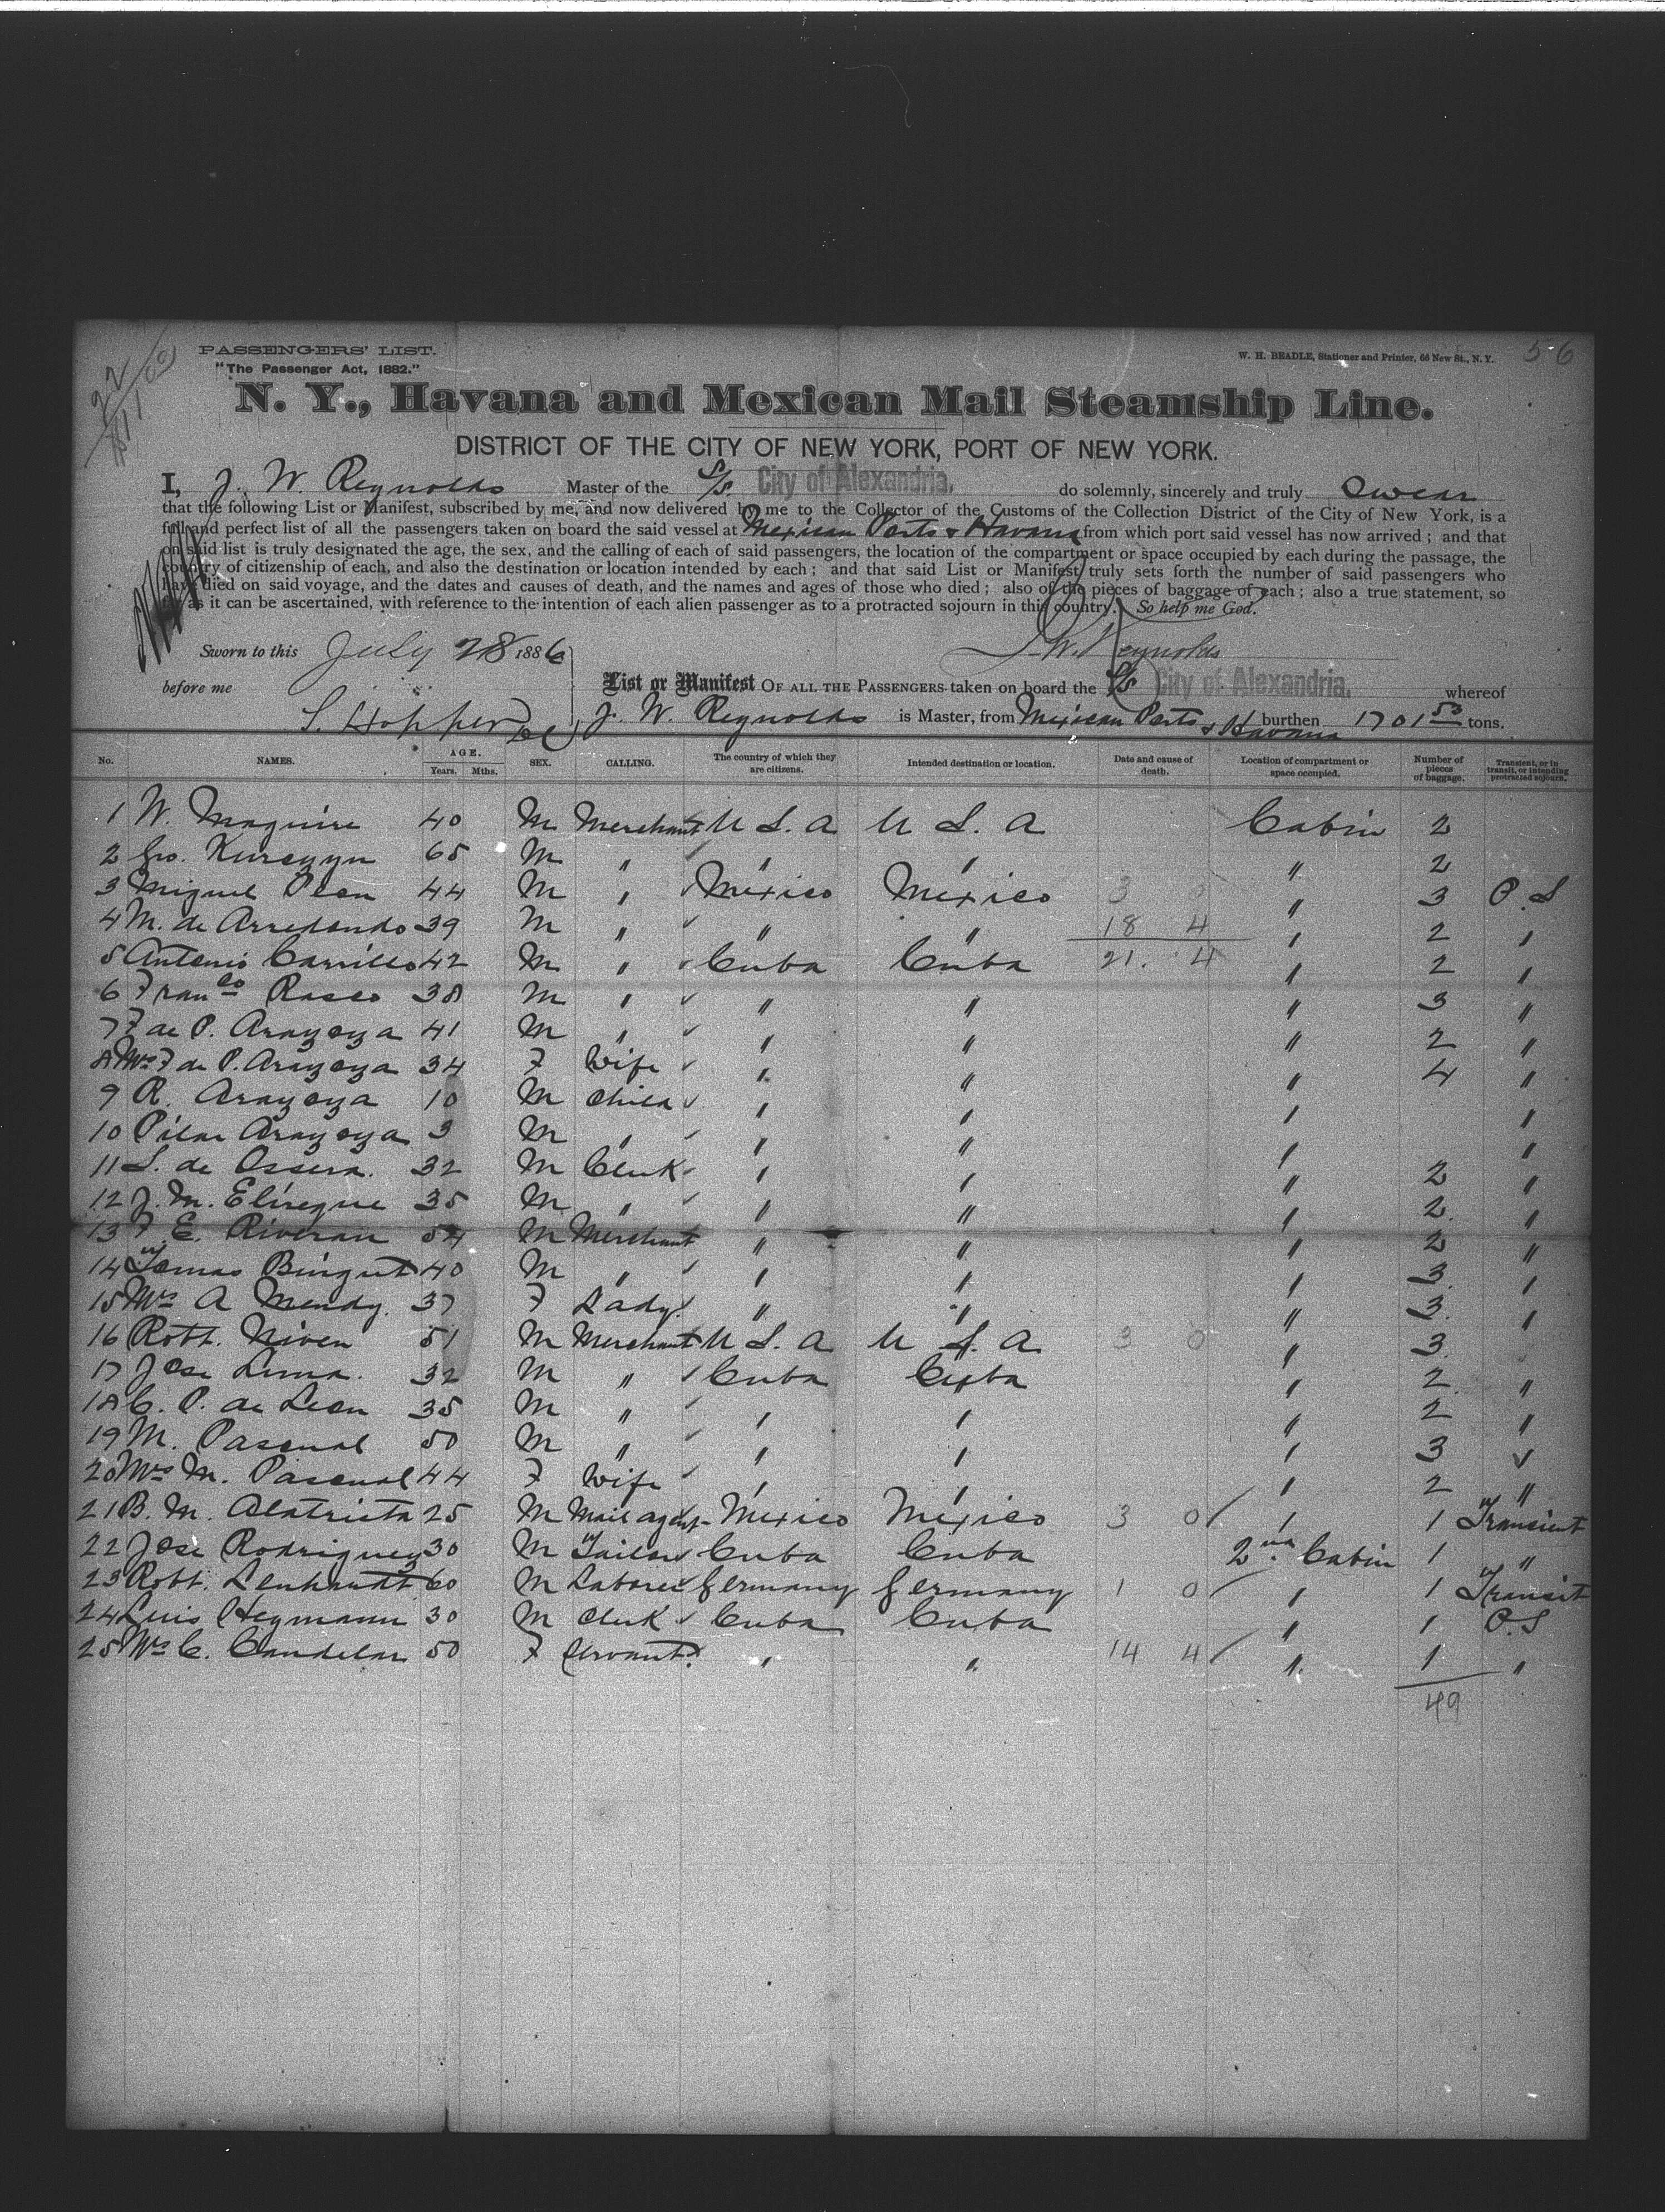 PASSENGERS' LIST.
"The Passenger Act, 1882."
W. H. BEADLE, Stationer and Printer, 66 New St., N. Y.
56
N. Y., Havana and Mexican Mail Steamship Line.
DISTRICT OF THE CITY OF NEW YORK, PORT OF NEW YORK.
I, J. W. Reynolds Master of the S/S. City of Alexandria, do solemnly, sincerely and truly swear
that the following List or Manifest, subscribed by me, and now delivered by me to the Collector of the Customs of the Collection District of the City of New York, is a
full and perfect list of all the passengers taken on board the said vessel at Mexican Ports & Havana from which port said vessel has now arrived; and that
on said list is truly designated the age, the sex, and the calling of each of said passengers, the location of the compartment or space occupied by each during the passage, the
country of citizenship of each, and also the destination or location intended by each; and that said List or Manifest truly sets forth the number of said passengers who
have died on said voyage, and the dates and causes of death, and the names and ages of those who died; also of the pieces of baggage of each; also a true statement, so
far as it can be ascertained, with reference to the intention of each alien passenger as to a protracted sojourn in this country. So help me God.
Sworn to this July 28 1886 J. W. Reynolds
before me List or Manifest OF ALL THE PASSENGERS taken on board the S/S City of Alexandria, whereof
S. Hopper J. W. Reynolds is Master, from Mexican Ports & Havana burthen 1701 53 tons.
No. NAMES. AGE. Years. Mths. SEX. CALLING. The country of which they are citizens. Intended destination or location. Date and cause of death. Location of compartment or space occupied. Number of pieces of baggage. Transient, or in transit, or intending protracted sojourn.
1 W. Maguire 40 M Merchant U S. A U S. A Cabin 2
2 Geo. 65 M " " " " 2
3 Miguel Peon 44 M " Mexico Mexico 3 0 " 3 P. S
4 M. de Arredondo 39 M " " " 18 4 " 2 "
5 Antonio Carrillo 42 M " Cuba Cuba 21. 4 " 2 "
6 Franco Rasco 38 M " " " " 3 "
7 F de P. Arazoza 41 M " " " " 2 "
8 Mrs F de P. Arazoza 34 F Wife " " " 4 "
9 R. Arazoza 10 M Child " " " "
10 Pilar Arazoza 3 M " " " " "
11 S. de Ossera. 32 M Clerk " " " 2 "
12 J. M. 35 M " " " " 2. "
13 F. E. Riveran 54 M Merchant " " " 2 "
14 Tomas 40 M " " " " 3. "
15 Mrs A Mendy. 37 F Lady " " " 3. "
16 Robt. Niven 51 M Merchant U S. A U S. A 3 0 " 3.
17 Jose Lima. 32 M " Cuba Cuba " 2. "
18 C. P. de Leon 35 M " " " " 2 "
19 M. Pascual 50 M " " " " 3 "
20 Mrs M. Pascual 44 F Wife " " " 2 "
21 B. M. Alatrista 25 M Mail agent Mexico Mexico 3 0 " 1 Transient
22 Jose Rodriguez 30 M Tailor Cuba Cuba 2nd Cabin 1 "
23 Robt. Lenhardt 60 M Laborer Germany Germany 1 0 " 1 Transit
24 Luis Heymann 30 M Clerk Cuba Cuba " 1 P. S
25 Mrs C. Candelar 50 F Servant " " 14 4 " 1 "
49